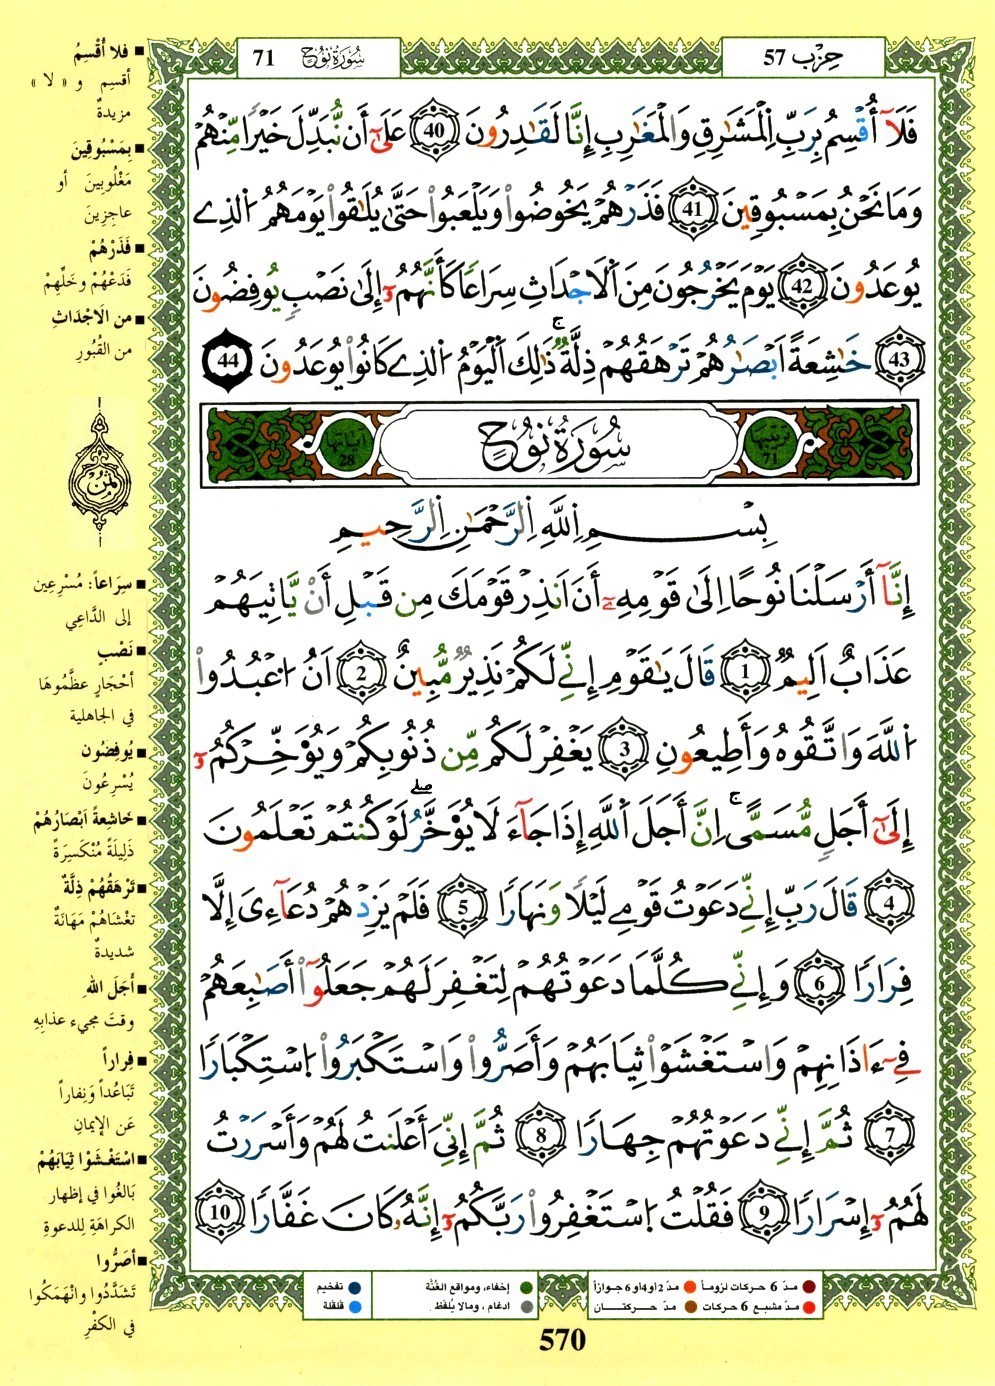 حِزْب 57
سُورَةُ نُوح 71
فَلَآ أُقْسِمُ بِرَبِّ اِ۬لْمَشَٰرِقِ وَالْمَغَٰرِبِ إِنَّا لَقَٰدِرُونَ 40 عَلَىٰٓ أَن نُّبَدِّلَ خَيْراٗ مِّنْهُمْ
وَمَا نَحْنُ بِمَسْبُوقِينَ 41 فَذَرْهُمْ يَخُوضُواْ وَيَلْعَبُواْ حَتَّىٰ يُلَٰقُواْ يَوْمَهُمُ اُ۬لذِے
يُوعَدُونَ 42 يَوْمَ يَخْرُجُونَ مِنَ اَ۬لَاجْدَاثِ سِرَاعاٗ كَأَنَّهُمُۥٓ إِلَىٰ نَصْبٖ يُوفِضُونَ
43 خَٰشِعَةً اَبْصَٰرُهُمْ تَرْهَقُهُمْ ذِلَّةٞۚ ذَٰلِكَ اَ۬لْيَوْمُ اُ۬لذِے كَانُواْ يُوعَدُونَ 44
ترتيبها 71
سُورَةُ نُوحٍ
آياتها 28
بِسْمِ اِ۬للَّهِ اِ۬لرَّحْمَٰنِ اِ۬لرَّحِيمِ
إِنَّآ أَرْسَلْنَا نُوحاً اِلَىٰ قَوْمِهِۦٓ أَنَ اَنذِرْ قَوْمَكَ مِن قَبْلِ أَنْ يَّاتِيَهُمْ
عَذَابٌ اَلِيمٞ 1 قَالَ يَٰقَوْمِ إِنِّے لَكُمْ نَذِيرٞ مُّبِينٌ 2 اَنُ اُ۟عْبُدُواْ
اُ۬للَّهَ وَاتَّقُوهُ وَأَطِيعُونِ 3 يَغْفِرْ لَكُم مِّن ذُنُوبِكُمْ وَيُوَ۬خِّرْكُمُۥٓ
إِلَىٰٓ أَجَلٖ مُّسَمّيًۚ اِنَّ أَجَلَ اَ۬للَّهِ إِذَا جَآءَ لَا يُوَ۬خَّرُۖ لَوْ كُنتُمْ تَعْلَمُونَ
4 قَالَ رَبِّ إِنِّے دَعَوْتُ قَوْمِے لَيْلاٗ وَنَهَاراٗ 5 فَلَمْ يَزِدْهُمْ دُعَآءِيَ إِلَّا
فِرَاراٗ 6 وَإِنِّے كُلَّمَا دَعَوْتُهُمْ لِتَغْفِرَ لَهُمْ جَعَلُوٓاْ أَصَٰبِعَهُمْ
فِےٓ ءَاذَانِهِمْ وَاسْتَغْشَوْاْ ثِيَابَهُمْ وَأَصَرُّواْ وَاسْتَكْبَرُواْ اُ۪سْتِكْبَاراٗ
7 ثُمَّ إِنِّے دَعَوْتُهُمْ جِهَاراٗ 8 ثُمَّ إِنِّيَ أَعْلَنتُ لَهُمْ وَأَسْرَرْتُ
لَهُمُۥٓ إِسْرَاراٗ 9 فَقُلْتُ اُ۪سْتَغْفِرُواْ رَبَّكُمُۥٓ إِنَّهُۥ كَانَ غَفَّاراٗ 10
■ فلا أُقْسِمُ
أقسِم و « لا »
مزيدةٌ
■ بِمَسْبُوقِينَ
مَغْلُوبينَ أو
عاجِزِينَ
■ فَذَرْهُمْ
فَدَعْهُمْ وخَلِّهِمْ
■ من الَاجْدَاثِ
من القُبُورِ
ثُمُن
■ سِرَاعاً: مُسْرِعِين
إلى الدَّاعِي
■ نَصْبٍ
أحْجَارٍ عظَّمُوهَا
في الجاهلية
■ يُوفِضُون
يُسْرِعُونَ
■ خَاشِعةً ابْصَارُهُمْ
ذَلِيلَةً مُنْكَسِرَةً
■ تَرْهَقُهُمْ ذِلَّةٌ
تغْشَاهُمْ مَهَانَةٌ
شديدةٌ
■ أَجَلَ الله
وقتَ مجيء عذابِهِ
■ فِراراً
تَبَاعُداً وَنِفاراً
عَنِ الإيمانِ
■ اسْتَغْشَوْا ثِيَابَهُمْ
بَالغُوا في إظهار
الكراهَةِ لِلدعوةِ
■ أصَرُّوا
تَشَدَّدُوا وانْهَمَكُوا
في الكفْرِ
مدّ 6 حركات لزوماً
مدّ 2 أو 4 أو 6 جوازاً
مدّ مشبع 6 حركات
مدّ حركتــان
إخفاء، ومواقع الغُنَّة
ادغام ، ومالا يُلفَظ
تفخيم
قلقلة
570